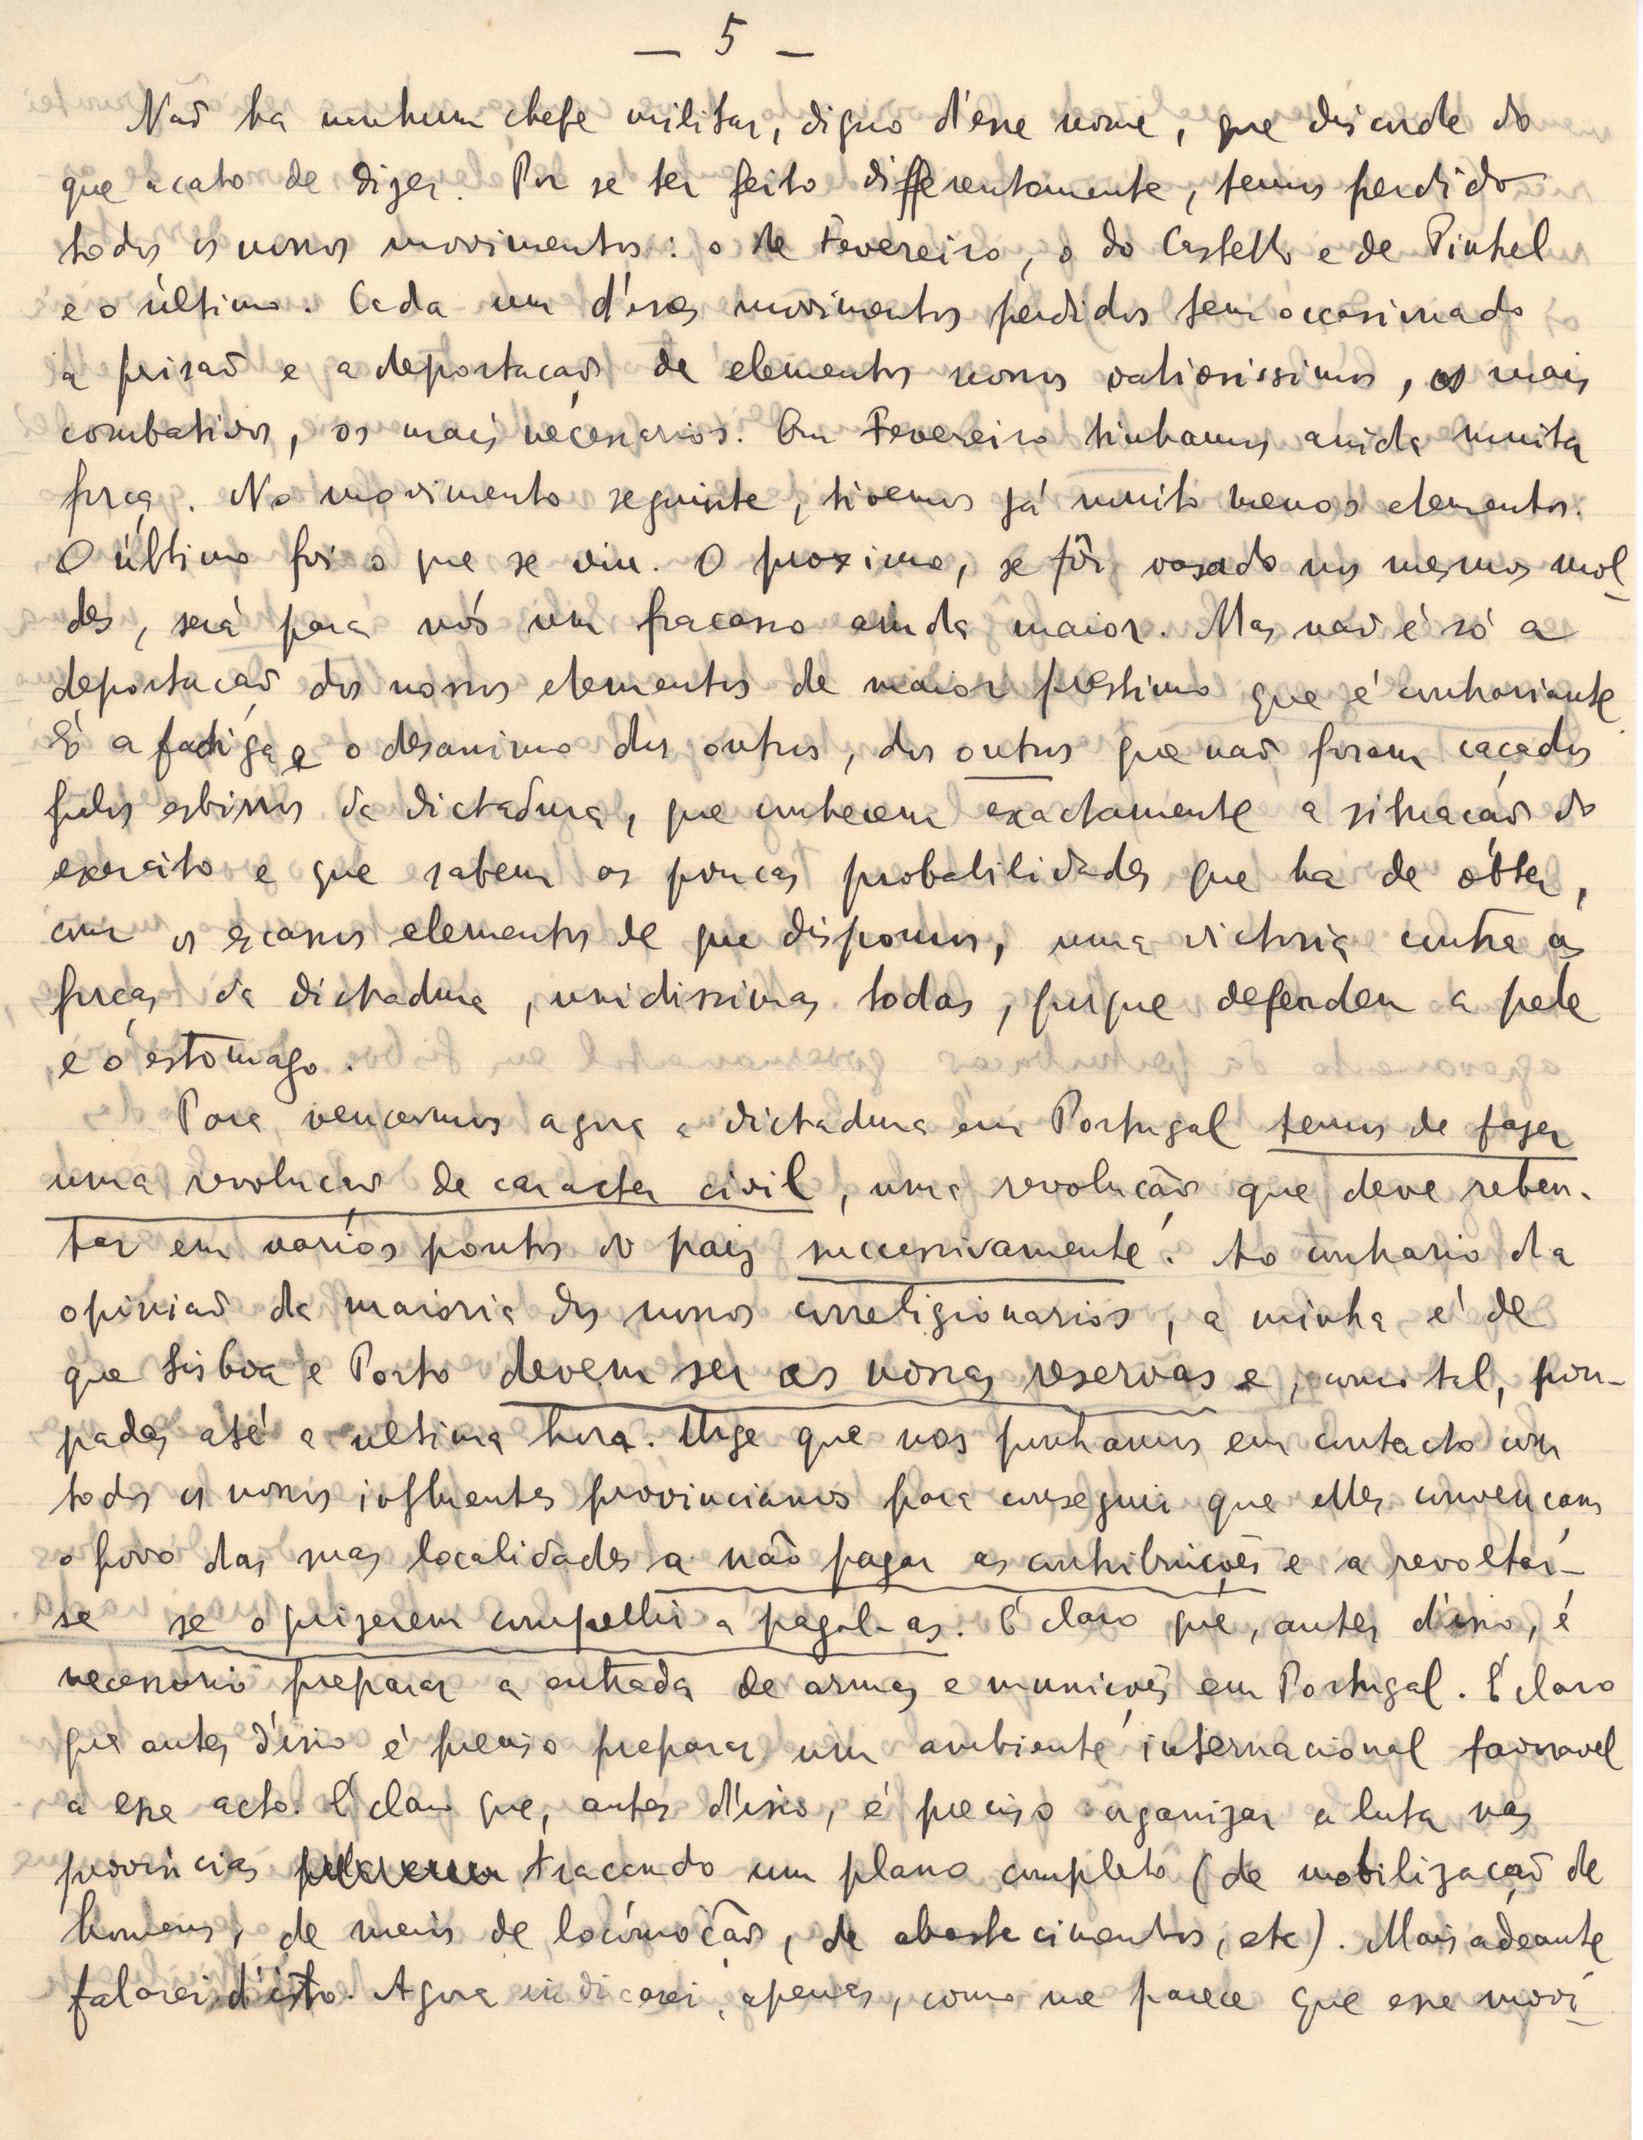 — 5 —
Não ha nenhum chefe militar, digno d'esse nome, que discorde do
que acabo de dizer. Por se ter feito differentemente, temos perdido
todos os nossos movimentos: o de Fevereiro, o do Castello e de Pinhel
e o último. Cada um d'esses movimentos perdidos tem occasionado
a prisão e a deportação de elementos nossos valiosissimos, os mais
combativos, os mais necessarios. Em Fevereiro tinhamos ainda muita
força. No movimento seguinte, tivemos já muito menos elementos.
O último foi o que se viu. O proximo, se fôr vasado nos mesmos mol-
des, será para nós um fracasso ainda maior. Mas não é só a
deportação dos nossos elementos de maior prestimo que é contrariante.
É a fadiga e o desanimo dos outros, dos outros que não foram caçados
pelos esbirros da dictadura, que conhecem exactamente a situação do
exercito e que sabem as poucas probabilidades que ha de obter,
com os escassos elementos de que dispomos, uma victoria contra as
forças da dictadura, unidissimas todas, porque defendem a pele
e o estomago.
Para vencermos agora a dictadura em Portugal temos de fazer
uma revolução de caracter civil, uma revolução que deve reben-
tar em varios pontos do pais successivamente. Ao contrario da
opinião da maioria dos nossos correligionarios, a minha é de
que Lisboa e Porto devem ser as nossas reservas e, como tal, pou-
padas até a ultima hora. Urge que nos ponhamos em contacto com
todos os nossos influentes provincianos para conseguir que elles convençam
o povo das suas localidades a não pagar as contribuições e a revoltar-
se se o quizerem compellir a pagal-as. É claro que, antes d'isso, é
necessario preparar a entrada de armas e munições em Portugal. É claro
que antes d'isso é preciso preparar um ambiente internacional favoravel
a esse acto. É claro que, antes d'isso, é preciso organizar a luta nas
provincias traçando um plano completo (de mobilização de
homens, de meios de locomoção, de abastecimentos, etc). Mais adeante
falarei d'isto. Agora indicarei, apenas, como me parece que esse movi-